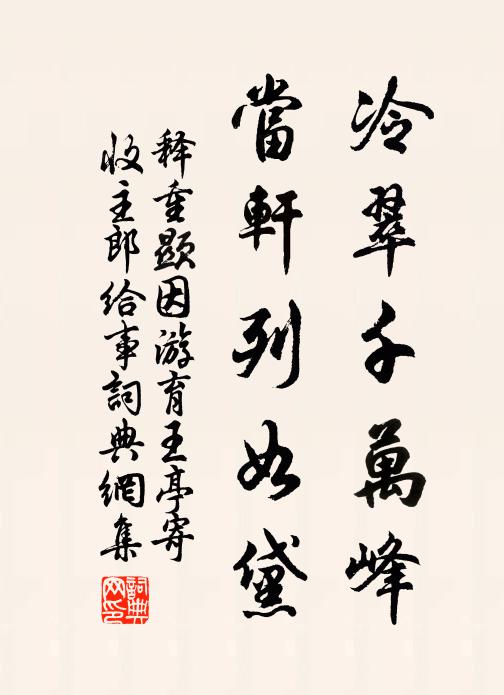 冷翠千萬峰
當軒列如黛
释重顯因游育王亭寄
收主郎给事詞典網集
詞典